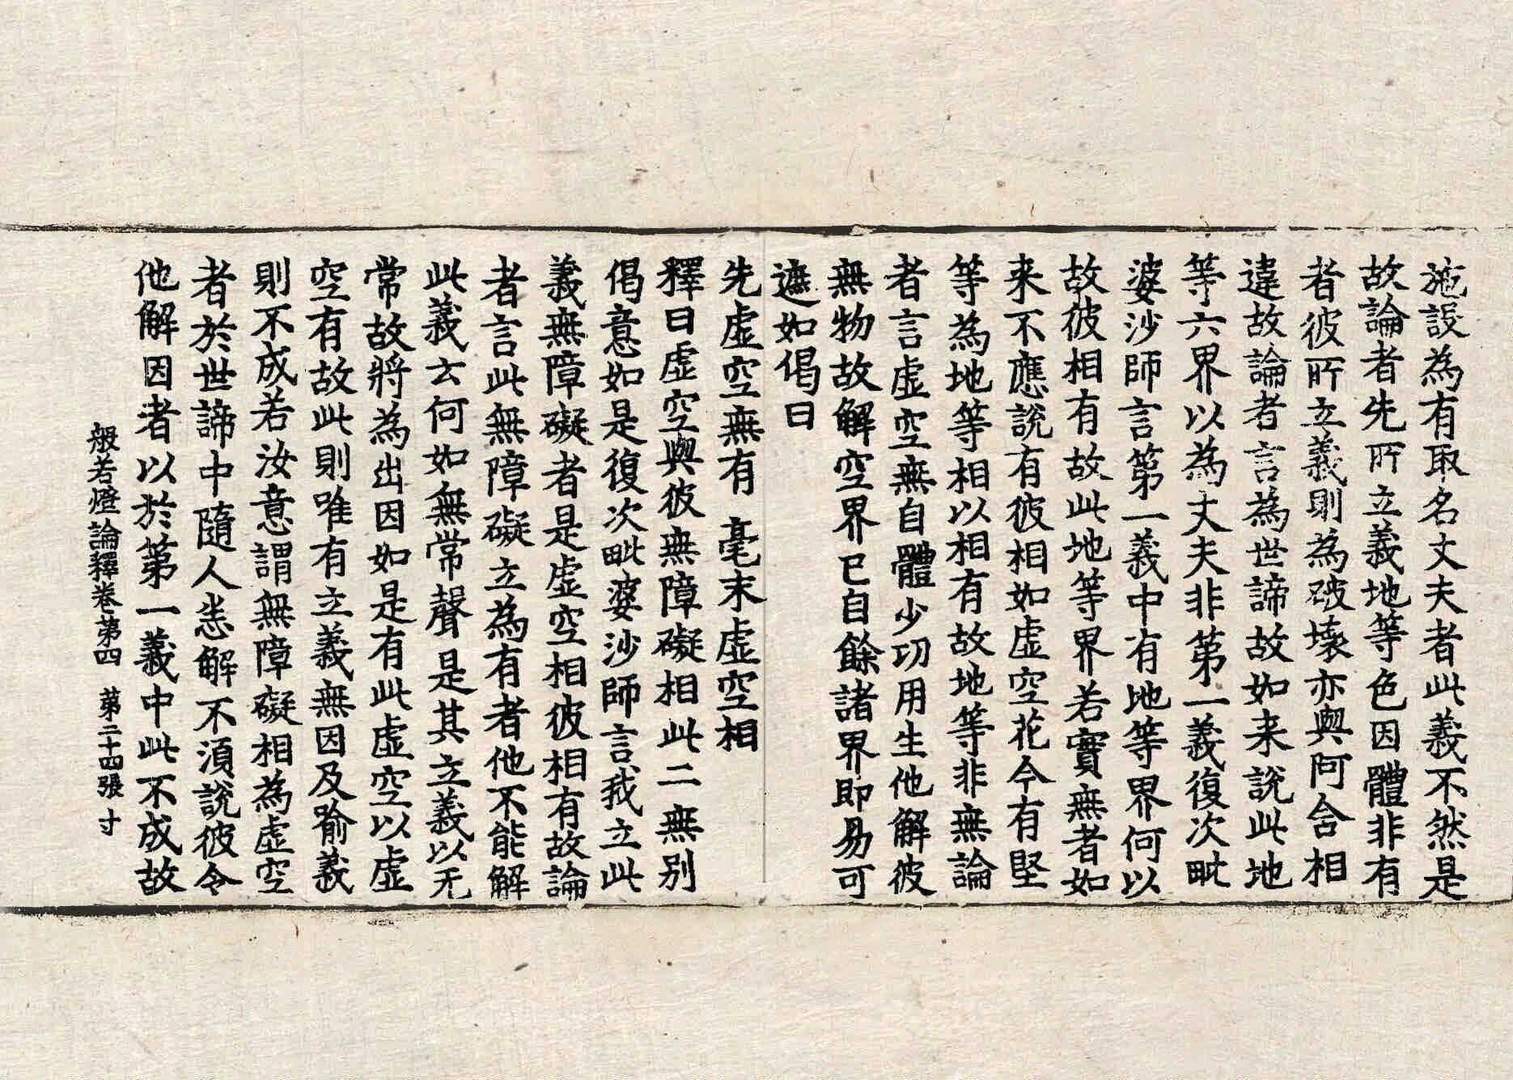 施設為有取名丈夫者此義不然是
故論者先所立義地等色因體非有
者彼所立義則為破壞亦與阿含相
違故論者言為世諦故如来說此地
等六界以為丈夫非第一義復次毗
婆沙師言第一義中有地等界何以
故彼相有故此地等界若實無者如
来不應說有彼相如虛空花今有堅
等為地等相以相有故地等非無論
者言虛空無自體少功用生他解彼
無物故解空界已自餘諸界即易可
遮如偈曰
先虛空無有 毫末虛空相
釋曰虛空與彼無障礙相此二無別
偈意如是復次毗婆沙師言我立此
義無障礙者是虛空相彼相有故論
者言此無障礙立為有者他不能解
此義云何如無常聲是其立義以无
常故將為出因如是有此虛空以虛
空有故此則唯有立義無因及喻義
則不成若汝意謂無障礙相為虛空
者於世諦中隨人悉解不須說彼令
他解因者以於第一義中此不成故
般若燈論釋卷第四 第二十四張 寸